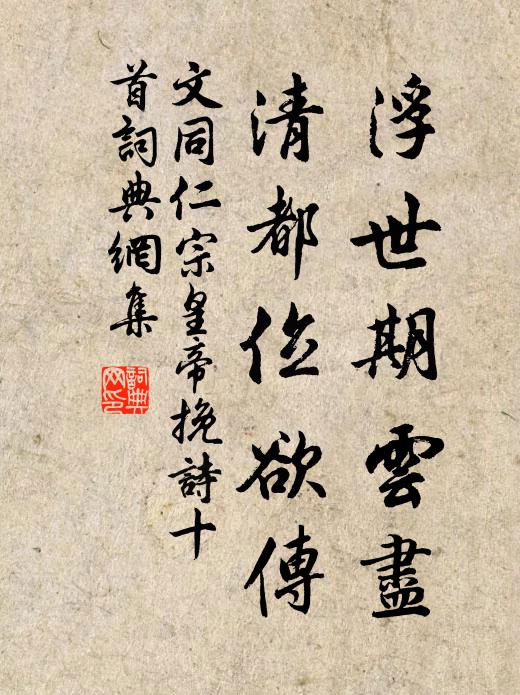 浮世期雲盡
清都位欲傳
文同仁宗皇帝挽詩十
首詞典網集
詞典
网印